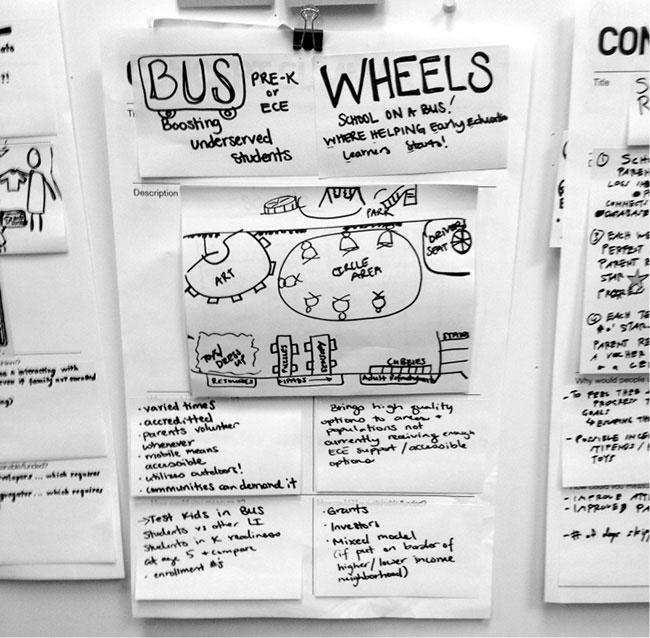 BUS
PRE-K
or
ECE
Boosting
underserved
students
WHEELS
SCHOOL ON A BUS!
WHERE HELPING Early Education
Learners Starts!
Description
PARK
DRIVERS
SEAT
ART
CIRCLE
AREA
TOY/
DRESS
UP
PUZZLES
READING
STAIRS
CUBBIES
RESOURCES
Adult
· varied times
· accreditted
· parents volunteer
whenever
· mobile means
accessible
· utilizes outdoors!
· communities can demand it
Brings high quality
options to areas +
populations not
currently receiving enough
ECE support/accessible
options
→Test kids in BUS
students vs other LI
students in K readiness
at age 5 + compare
· enrollment #s
· Grants
· Investors
· Mixed model
(if put on border of
higher/lower income
neighborhood)
a interacting with
even if family not enrolled
velopers... which requires
... which requires
CON
Title
① SCHO
PAREN
LOGS IN
CONNECTS
DATABASE
EACH WE
PERFECT
PARENT R
STAR
EACH TE
# o' STAR
PARENT RE
A VOUCHER
Why would people u
-TO FEEL THE
GOALS
- POSSIBLE INCE
STIPENDS / H
TOYS
- IMPROVE ATT
- IMPROVED PA
- # of days skip